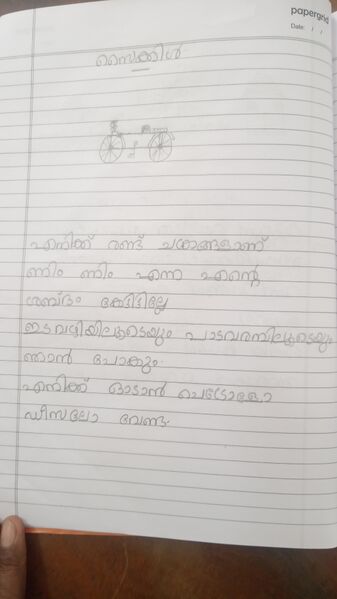 papergrid
Date: / /
സൈക്കിൾ
എനിക്ക് രണ്ട് ചക്രങ്ങളാണ്
ണിം ണിം എന്ന എന്റെ
ശബ്ദം കേട്ടിട്ടില്ലേ
ഇടവഴിയിലൂടെയും പാടവരമ്പിലൂടെയും
ഞാൻ പോകും
എനിക്ക് ഓടാൻ പെട്രോളോ
ഡീസലോ വേണ്ട